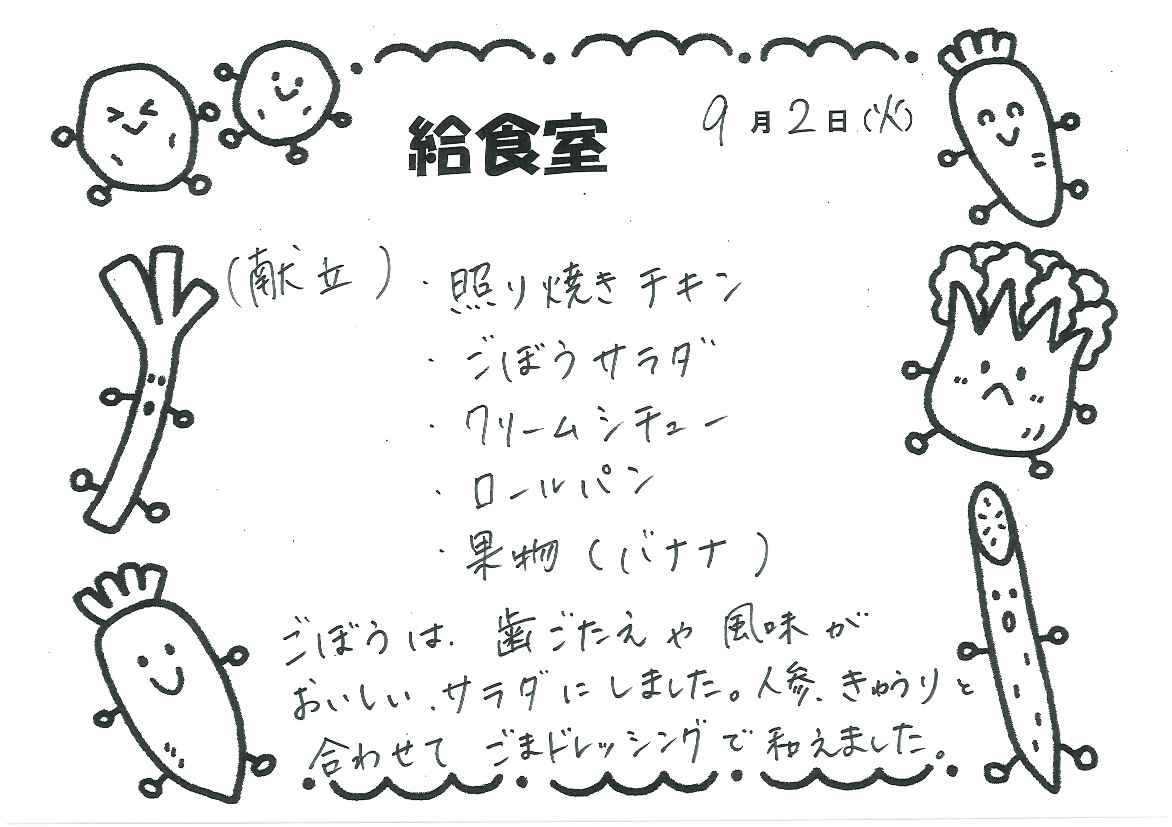 給食室
9月2日(火)
(献立)・照り焼きチキン
・ごぼうサラダ
・クリームシチュー
・ロールパン
・果物(バナナ)
ごぼうは、歯ごたえや風味が
おいしい、サラダにしました。人参、きゅうりと
合わせて ごまドレッシングで和えました。